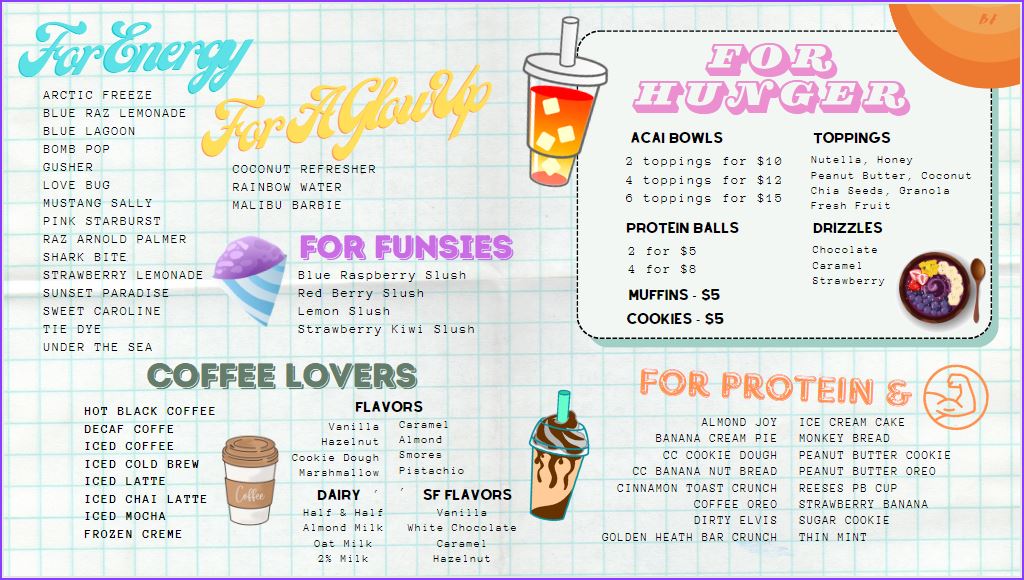 For Energy
ARCTIC FREEZE
BLUE RAZ LEMONADE
BLUE LAGOON
BOMB POP
GUSHER
LOVE BUG
MUSTANG SALLY
PINK STARBURST
RAZ ARNOLD PALMER
SHARK BITE
STRAWBERRY LEMONADE
SUNSET PARADISE
SWEET CAROLINE
TIE DYE
UNDER THE SEA
For A Glow Up
COCONUT REFRESHER
RAINBOW WATER
MALIBU BARBIE
FOR FUNSIES
Blue Raspberry Slush
Red Berry Slush
Lemon Slush
Strawberry Kiwi Slush
FOR
HUNGER
ACAI BOWLS
2 toppings for $10
4 toppings for $12
6 toppings for $15
PROTEIN BALLS
2 for $5
4 for $8
MUFFINS - $5
COOKIES - $5
TOPPINGS
Nutella, Honey
Peanut Butter, Coconut
Chia Seeds, Granola
Fresh Fruit
DRIZZLES
Chocolate
Caramel
Strawberry
COFFEE LOVERS
HOT BLACK COFFEE
DECAF COFFE
ICED COFFEE
ICED COLD BREW
ICED LATTE
ICED CHAI LATTE
ICED MOCHA
FROZEN CREME
Coffee
FLAVORS
Vanilla
Hazelnut
Cookie Dough
Marshmallow
Caramel
Almond
Smores
Pistachio
DAIRY
Half & Half
Almond Milk
Oat Milk
2% Milk
SF FLAVORS
Vanilla
White Chocolate
Caramel
Hazelnut
FOR PROTEIN &
ALMOND JOY
BANANA CREAM PIE
CC COOKIE DOUGH
CC BANANA NUT BREAD
CINNAMON TOAST CRUNCH
COFFEE OREO
DIRTY ELVIS
GOLDEN HEATH BAR CRUNCH
ICE CREAM CAKE
MONKEY BREAD
PEANUT BUTTER COOKIE
PEANUT BUTTER OREO
REESES PB CUP
STRAWBERRY BANANA
SUGAR COOKIE
THIN MINT